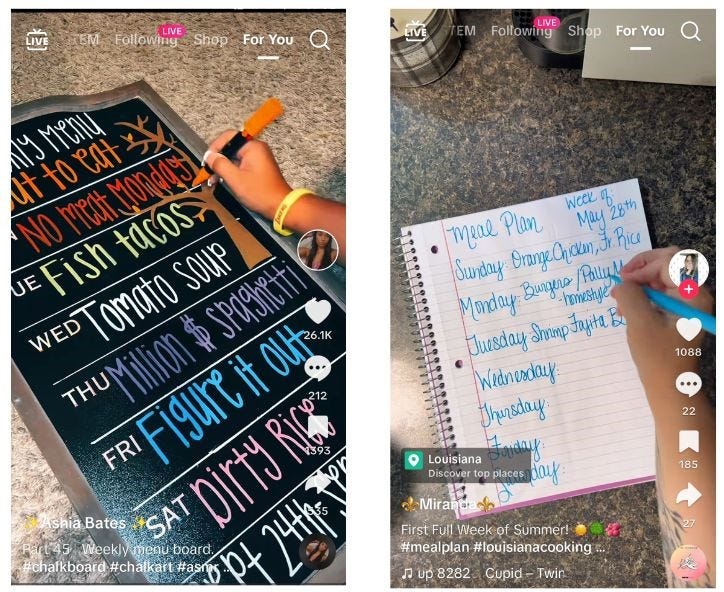 LIVE
TEM Following LIVE Shop For You
ly Menu
out to eat
No meat Monday
UE Fish tacos
WED Tomato soup
THU Million $ spaghetti
FRI Figure it out
SAT Dirty Rice
ept 24th
26.1K
212
1393
535
✨Ashia Bates ✨
Part 45 Weekly menu board.
#chalkboard #chalkart #asmr ...
LIVE
TEM Following LIVE Shop For You
Meal Plan
Week of:
May 28th
Sunday: Orange Chicken, Fr. Rice
Monday: Burgers / Patty M
homestyle
Tuesday Shrimp Fajita B
Wednesday:
Thursday:
Friday:
day:
1088
22
185
27
Louisiana
Discover top places
⚜Miranda⚜
First Full Week of Summer! ☀️🌳🌺
#mealplan #louisianacooking ...
♫ up 8282 Cupid – Twin